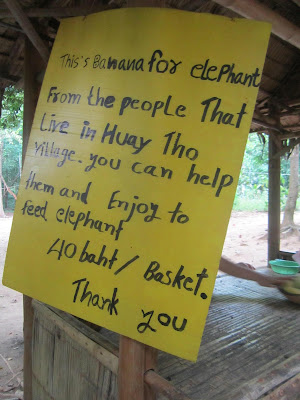 This's Banana for elephant
From the people That
Live in Huay Tho
Village. you can help
them and Enjoy to
feed elephant
40 baht / Basket.
Thank you